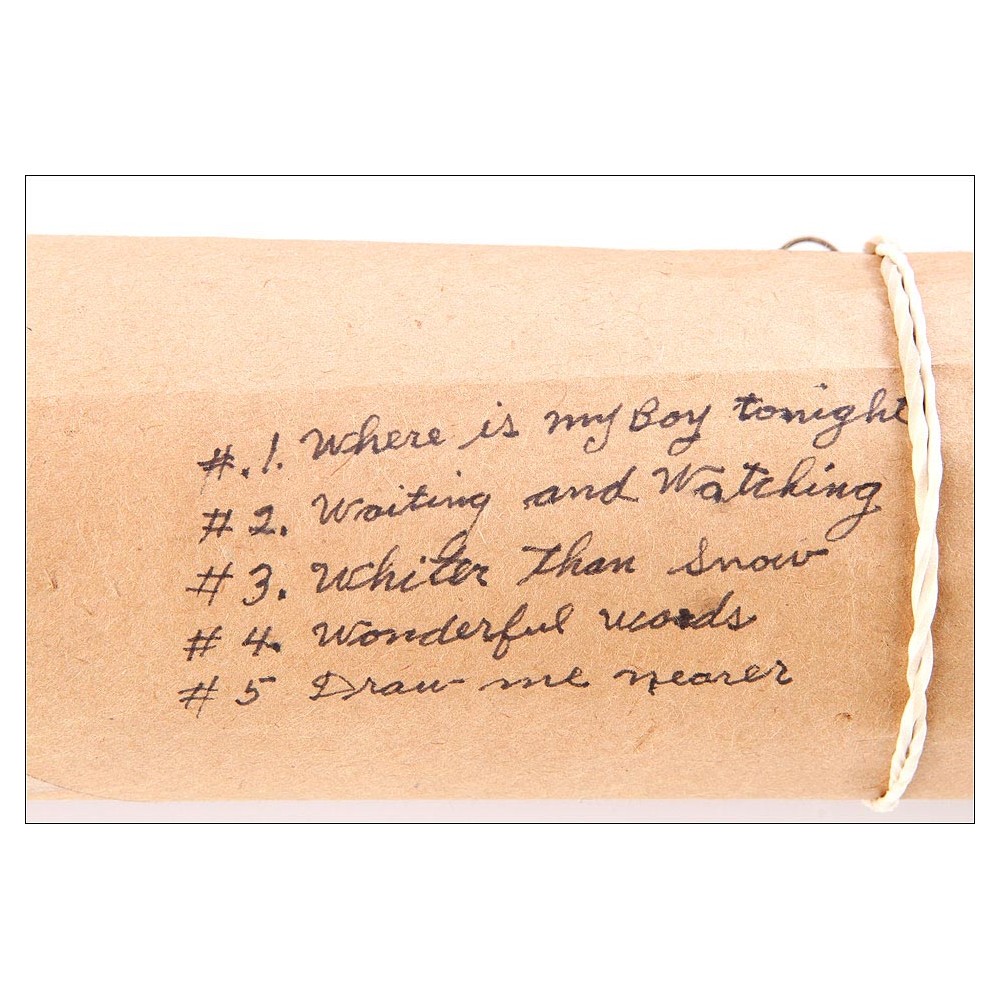 #.1. Where is my Boy tonight
#2. Waiting and Watching
#3. Whiter Than Snow
#4. Wonderful words
#5 Draw me nearer